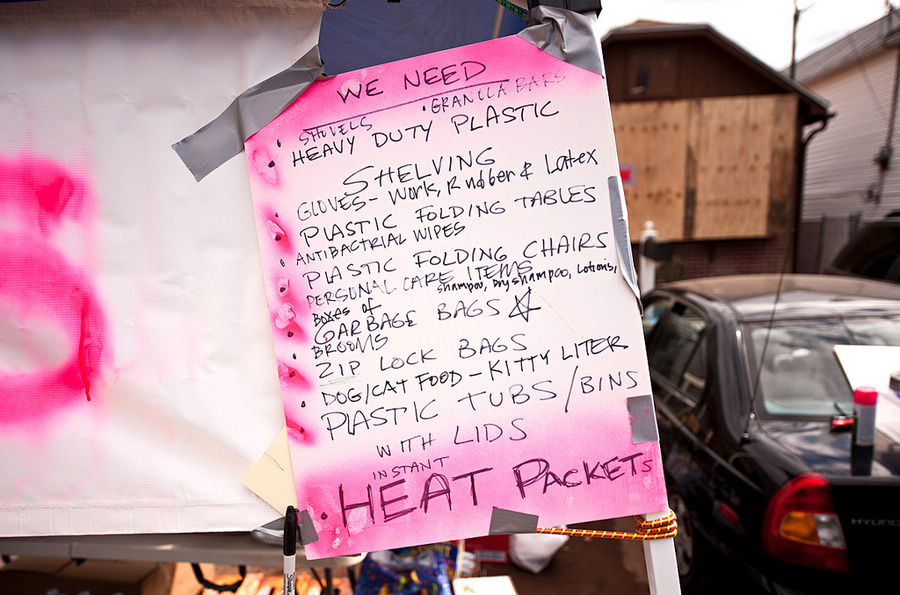 WE NEED
SHOVELS
• GRANOLA BARS
HEAVY DUTY PLASTIC
SHELVING
GLOVES - Work, Rubber & Latex
PLASTIC FOLDING TABLES
ANTIBACTRIAL WIPES
PLASTIC FOLDING CHAIRS
PERSONAL CARE ITEMS
shampoo, Dryshampoo, Lotions,
Boxes of
GARBAGE BAGS ☆
BROOMS
ZIP LOCK BAGS
DOG/CAT FOOD - KITTY LITER
PLASTIC TUBS/BINS
WITH LIDS
INSTANT
HEAT PACKETS
HYUNDAI
Sharpie